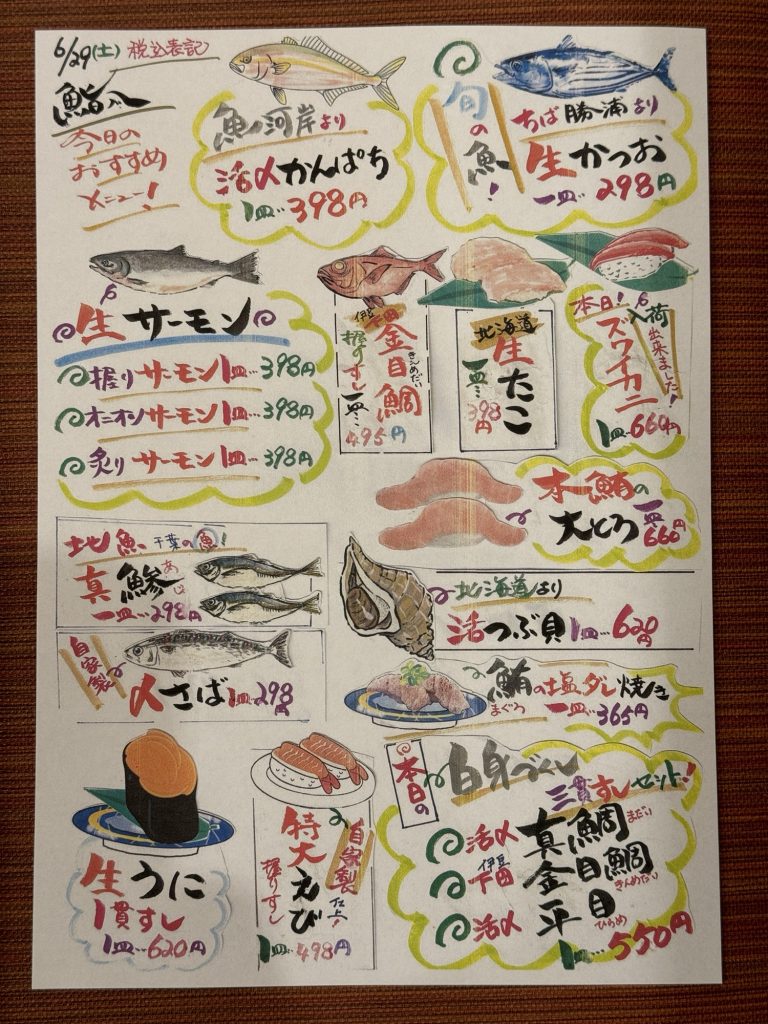 6/29(土) 税込表記
鮨人
今日の
おすすめ
メニュー!
魚河岸より
活〆かんぱち
1皿…398円
旬の魚!
ちば勝浦より
生かつお
一皿…298円
生サーモン
握りサーモン1皿…398円
オニオンサーモン1皿…398円
炙りサーモン1皿…398円
伊豆下田
金目鯛
きんめだい
握りすし一皿…
495円
北海道
生たこ
一皿…
398円
本日!
ズワイカニ
入荷出来ました!
1皿…660円
本鮪の
大とろ
一皿
660円
地魚 千葉の魚!
真鯵
あじ
一皿…298円
北海道より
活つぶ貝1皿…620円
自家製
〆さば1皿298円
鮪の塩ダレ焼き
まぐろ
一皿…365円
生うに
1貫すし
1皿…620円
特大えび
握りすし
自家製仕上!
1皿…498円
本日の
白身づくし
三貫すしセット!
活〆 真鯛 まだい
伊豆
下田 金目鯛 きんめだい
活〆 平目 ひらめ
1皿…550円